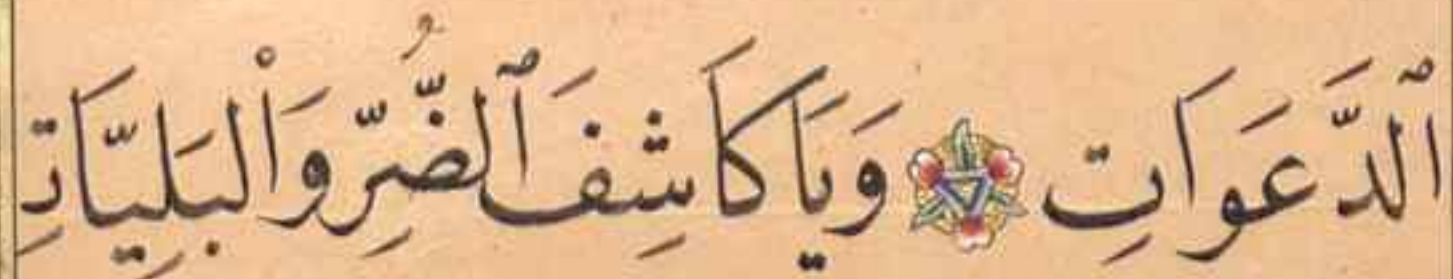 ٱلدَّعَوَاتِ وَيَا كَاشِفَ ٱلضُّرِّ وَالْبَلِيَّاتِ